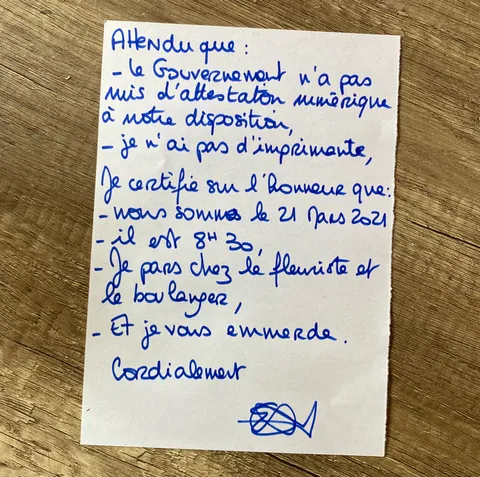 Attendu que :
- le Gouvernement n'a pas
mis d'attestation numérique
à notre disposition,
- je n'ai pas d'imprimante,
Je certifie sur l'honneur que:
- nous sommes le 21 Mars 2021
- il est 8H30,
- Je pars chez le fleuriste et
le boulanger,
- Et je vous emmerde.
Cordialement